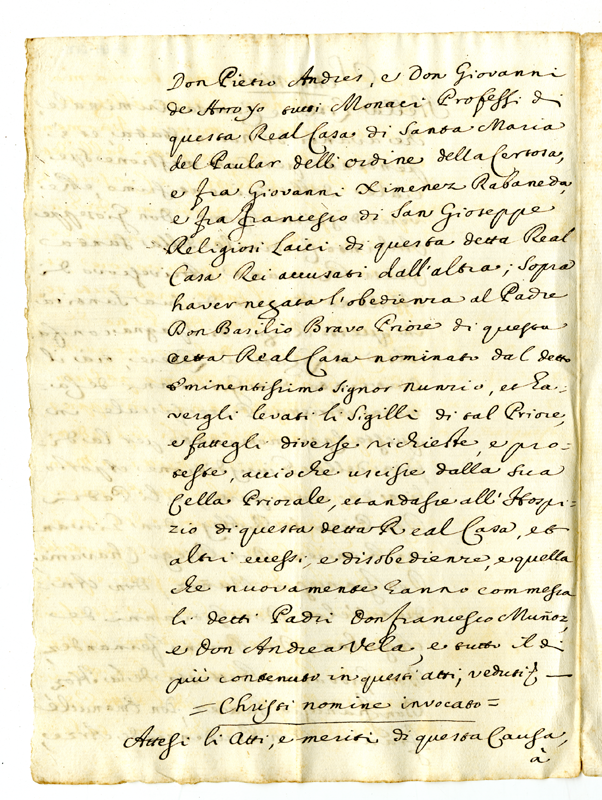 Don Pietro Andres, e Don Giovanni
de Arroyo tutti Monaci Professi di
questa Real Casa di Santa Maria
del Paular dell'ordine della Certosa,
e fra Giovanni Ximenez Rabaneda,
e fra francesco di San Gioseppe
Religiosi Laici di questa detta Real
Casa Rei accusati dall'altra; Sopra
haver negata l'obedienza al Padre
Don Basilio Bravo Priore di questa
detta Real Casa nominato dal detto
Eminentissimo Signor Nunzio, et ha-
vergli levati li Sigilli di tal Priore,
e fattegli diverse richieste, e pro-
teste, acciochè uscisse dalla sua
Cella Priorale, et andasse all'Hospi-
zio di questa detta Real Casa, et
altri eccessi, e disobedienze, e quella
che nuovamente hanno commessa
li detti Padri Don francesco Muñoz,
e Don Andrea Vela, e tutto il di
più contenuto in questi atti; veduti &c. —
= Christi nomine invocato =
Attesi li Atti, e meriti di questa Causa,
à